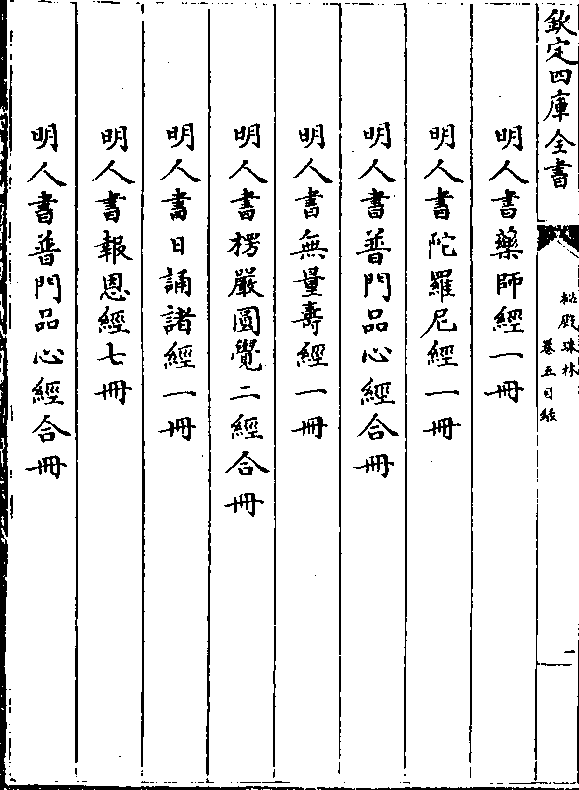 欽定四庫全書
秘殿珠林
卷五目録
一
明人書藥師經一冊
明人書陀羅尼經一冊
明人書普門品心經合冊
明人書無量壽經一冊
明人書楞嚴圓覺二經合冊
明人書日誦諸經一冊
明人書報恩經七冊
明人書普門品心經合冊